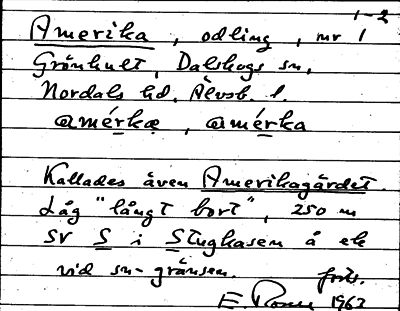 1-2
Amerika, odling, nr 1
Grönhult, Dalskogs sn,
Nordals hd. Älvsb. l.
amérkæ, amérka
Kallades även Amerikagärdet.
Låg "långt bort", 250 m
SV S i Stughasen å ek
vid sn-gränsen. forts.
E. 1962